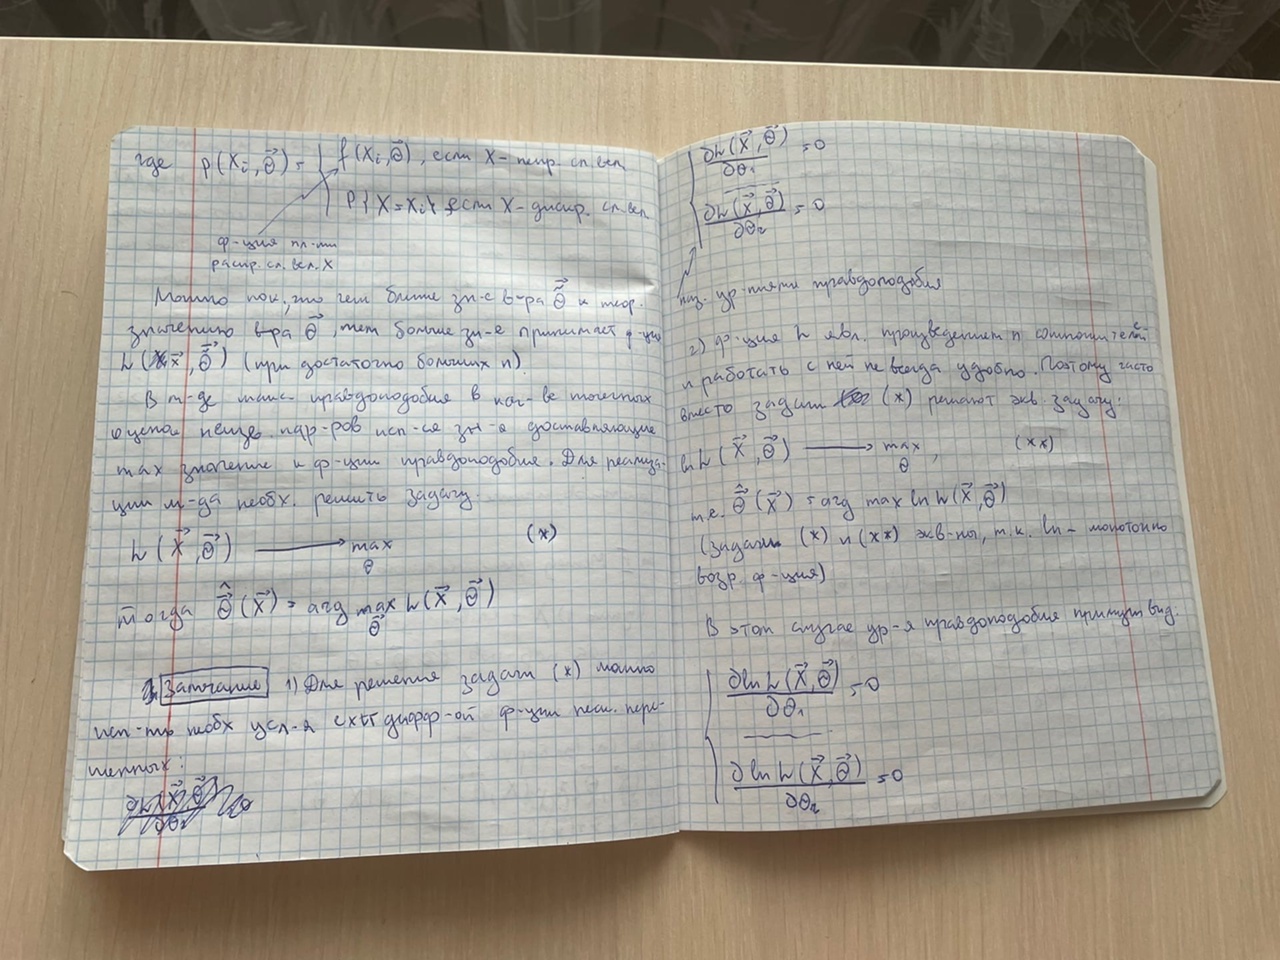 где p(Xᵢ, θ⃗) = { f(Xᵢ, θ⃗), если X - непр. сл. вел.
P{X = xᵢ}, если X - дискр. сл. вел.
ф-ция пл-ти
распр. сл. вел. X
Можно пок, что чем ближе зн-е в-ра θ̃⃗ к теор.
значению в-ра θ⃗, тем больше зн-е принимает ф-ция
L(x⃗, θ̃⃗) (при достаточно больших n).
В м-де макс. правдоподобия в кач-ве точечных
оценок неизв. пар-ров исп-ся зн-я доставляющие
max значение ф-ции правдоподобия. Для реализа-
ции м-да необх. решить задачу.
L(X⃗, θ⃗) ⟶ max (*)
θ
Тогда θ̂⃗(X⃗) = arg max L(X⃗, θ⃗)
θ⃗
Замечание 1) Для решения задачи (*) можно
исп-ть необх усл-я extr дифф-ой ф-ции неск. пере-
менных:
{ ∂L(X⃗, θ⃗)/∂θ₁ = 0
∂L(X⃗, θ⃗)/∂θᵣ = 0
наз. ур-ниями правдоподобия
2) ф-ция L явл. произведением n сомножителей
и работать с ней не всегда удобно. Поэтому часто
вместо задачи (*) решают экв. задачу:
ln L(X⃗, θ⃗) ⟶ max, (**)
θ
т.е. θ̂⃗(X⃗) = arg max ln L(X⃗, θ⃗)
(задачи (*) и (**) экв-ны, т.к. ln - монотонно
возр. ф-ция)
В этом случае ур-я правдоподобия примут вид.
{ ∂ln L(X⃗, θ⃗)/∂θ₁ = 0
∂ln L(X⃗, θ⃗)/∂θᵣ = 0